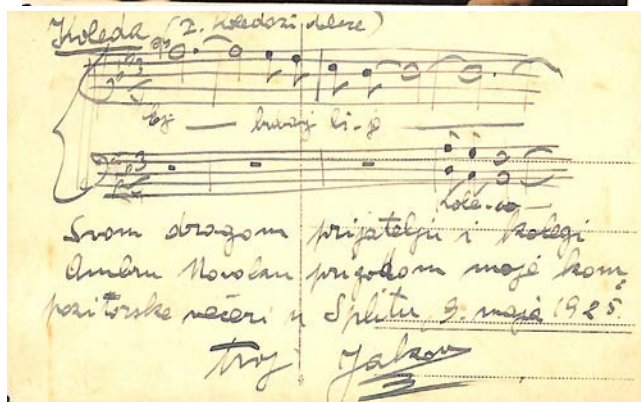 Koleda (I. Koledari dolaze)
Ej — kraj li-je
Kole-do
Svom dragom prijatelju i kolegi
Ambru Novaku prigodom moje kom
pozitorske večeri u Splitu, 9. maja 1925.
tvoj Jakov